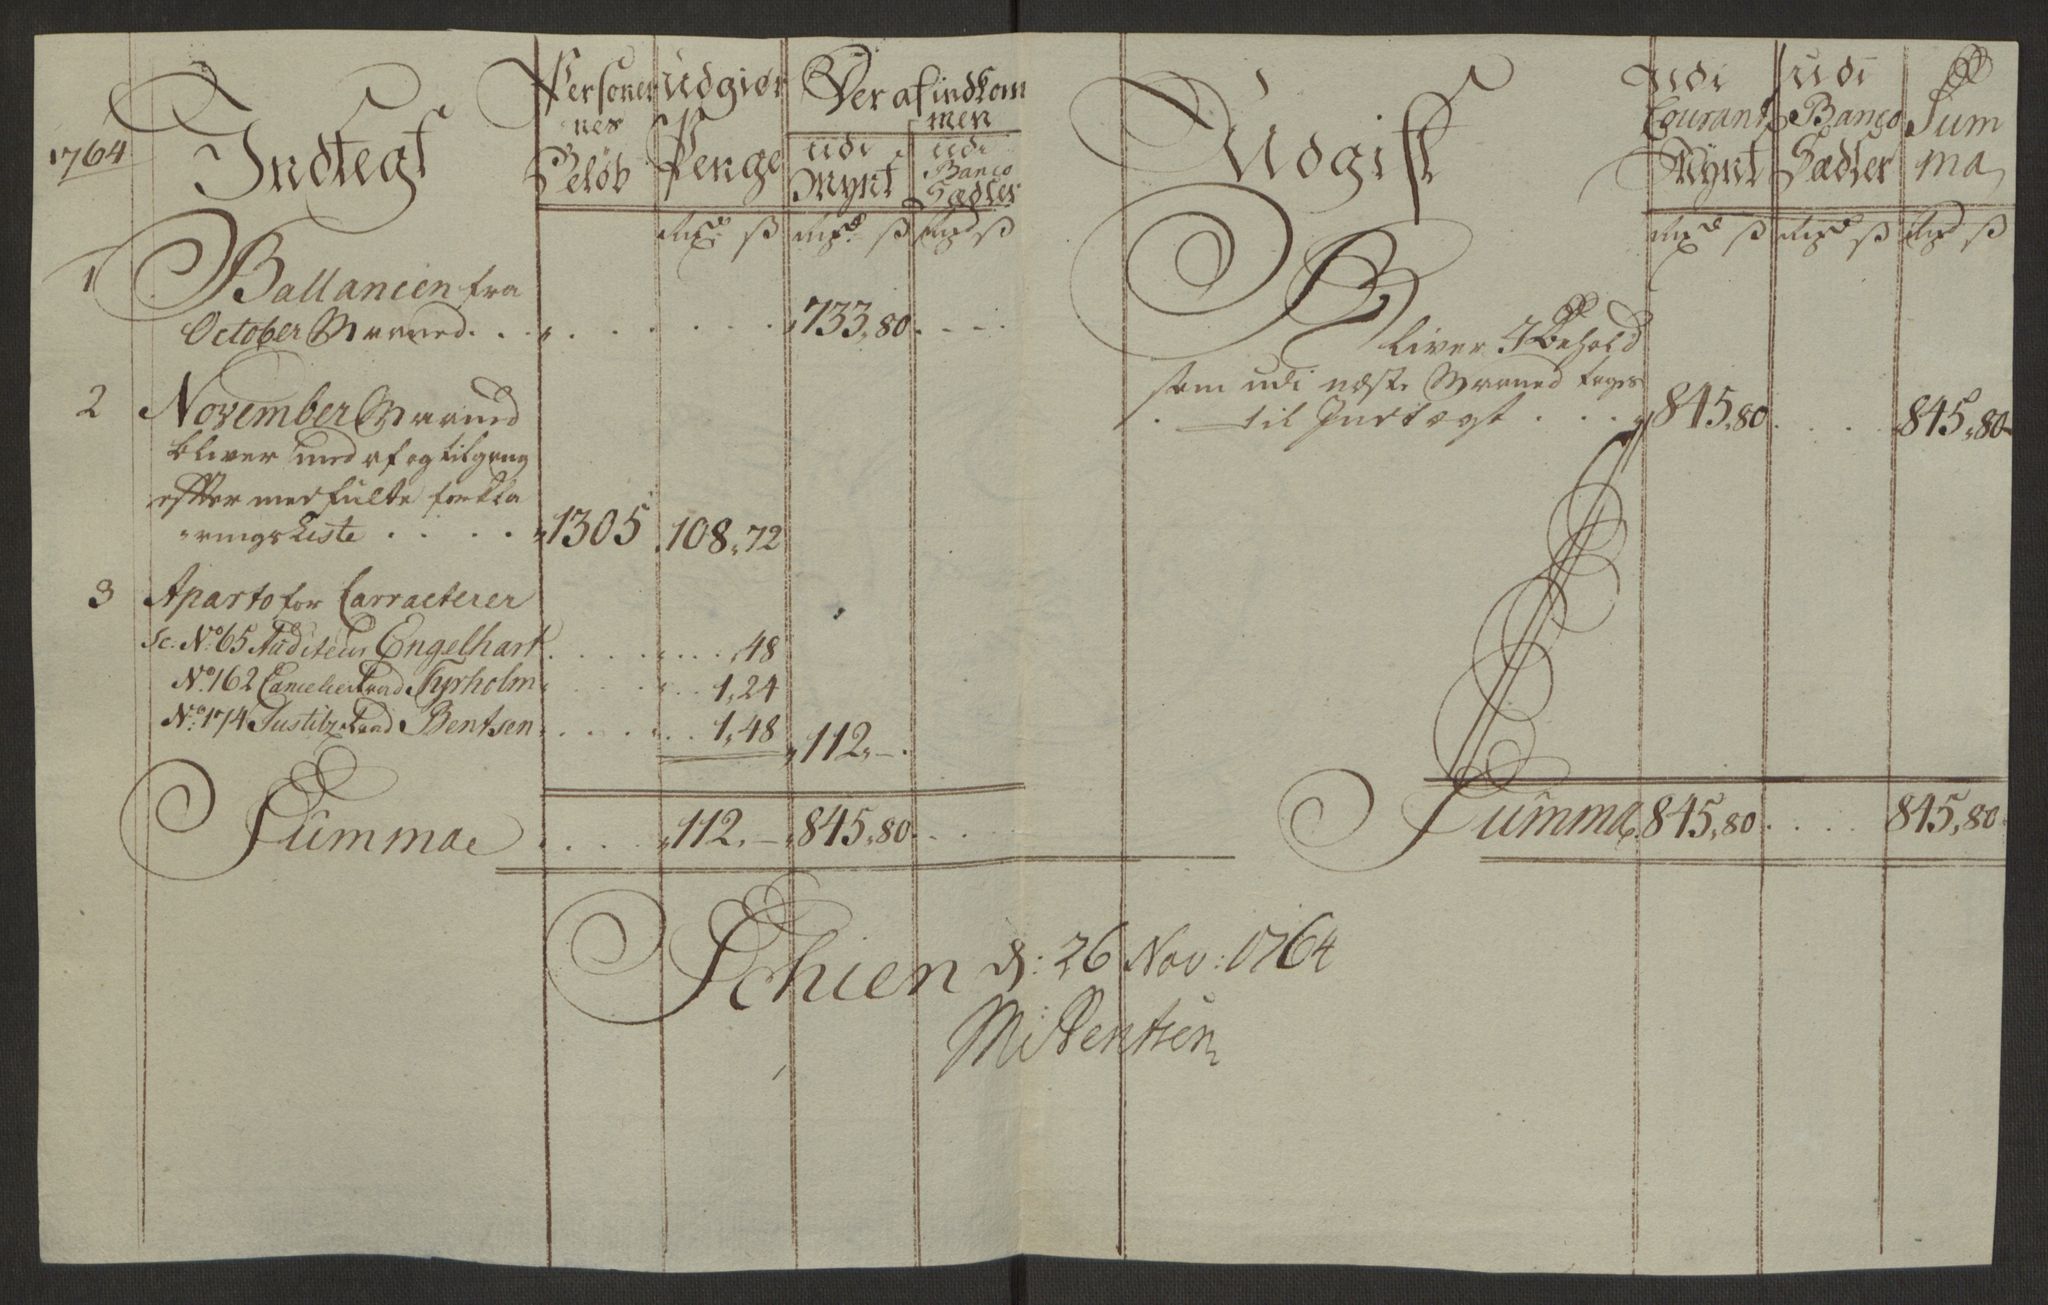 1764
Indtegt
Personer
nes
Beløb
Udgiør
Penge
Der af indkom
men
udi
Mynt
udi
Banco
Sædler
Rixd ß Rixd ß Rixd ß
1 Ballancen fra
October Maaned . . . . . . . . 733,80 . . . .
2 November Maaned
bliver med af og tilgang
efter medfulte forkla
rings Liste . . . . 1305 108,72
3 Aparto for Carracterer
Sc. No 65 Auditeur Engelhart . . . . . . . . ,48
No 162 Cancelieraad Tyrholm . . . . . . 1,24
No 174 Justitz Raad Bentsen . . . . . . 1,48
112,—
Summa . . . . 112,— 845,80 . . .
Udgift
Udi
Courant
Mynt
udi
Banco
Sædler
Sum
ma
Rixd ß Rixd ß Rixd ß
Bliver I Behold
som udi næste Maaned tages
til Indtægt . . . 845,80 . . . . 845,80
Summa 845,80 . . . . 845,80
Schien d: 26 Nov: 1764
M: Bentsen